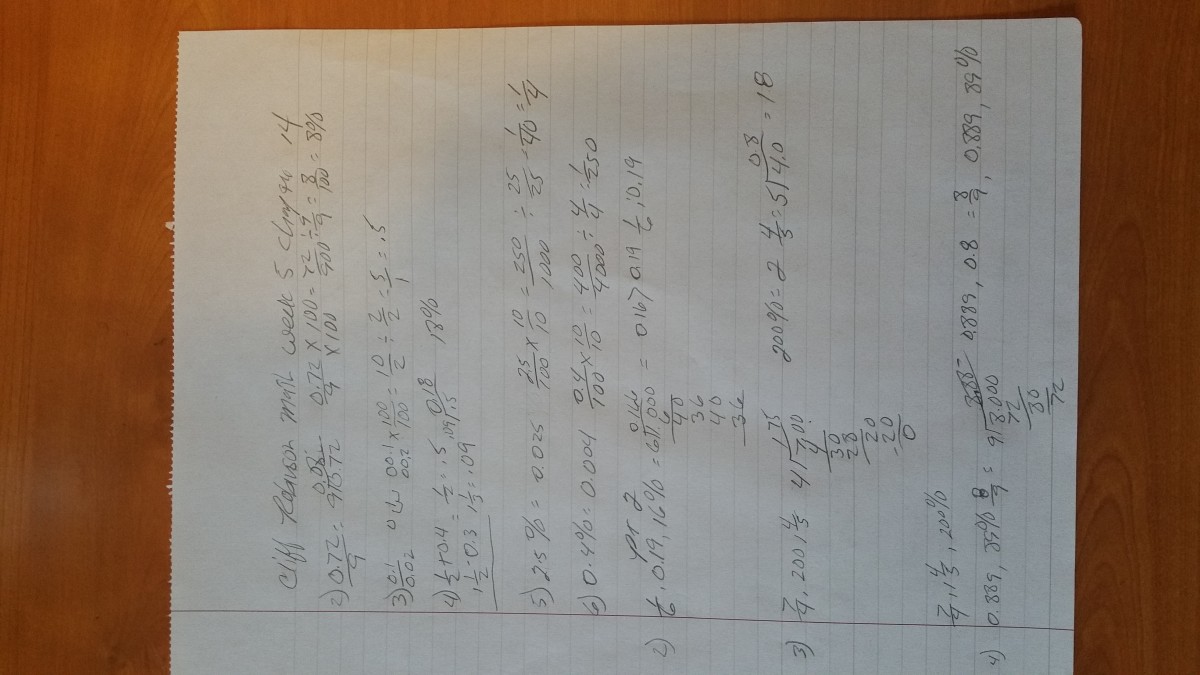 Cliff Robinson math week 5 chapter 14
2) 0.72/9 = 9)0.72 0.08 0.72/9 × 100/× 100 = 72/900 ÷ 9/÷ 9 = 8/100 = 8%
3) 0.1/0.02 00.1/00.2 × 100/100 = 10/2 ÷ 2/2 = 5/1 = .5
4) 1/2 + 0.4 = 1/2 = .5 .09/1.5 0.18 18%
1 1/2 - 0.3 1 1/3 = .09
5) 2.5% = 0.025 25/100 × 10/10 = 250/1000 ÷ 25/25 = 1/40 = 1/4
6) 0.4% = 0.004 0.4/100 × 10/10 = 400/4000 ÷ 4/4 = 1/250
pr 2
2) 1/6, 0.19, 16% = 6)1.000 0166 = 0167 0.19 1/6, 0.19
6
40
36
40
36
3) 7/4, 200 1 4/5 4)700 175 200% = 2 4/5 = 5)4.0 08 = 18
4
30
28
20
-20
0
7/4, 1 4/5, 200%
4) 0.889, 89% 8/9 = 9)8.000 0.889, 0.8 = 8/9, 0.889, 89%
72
80
72